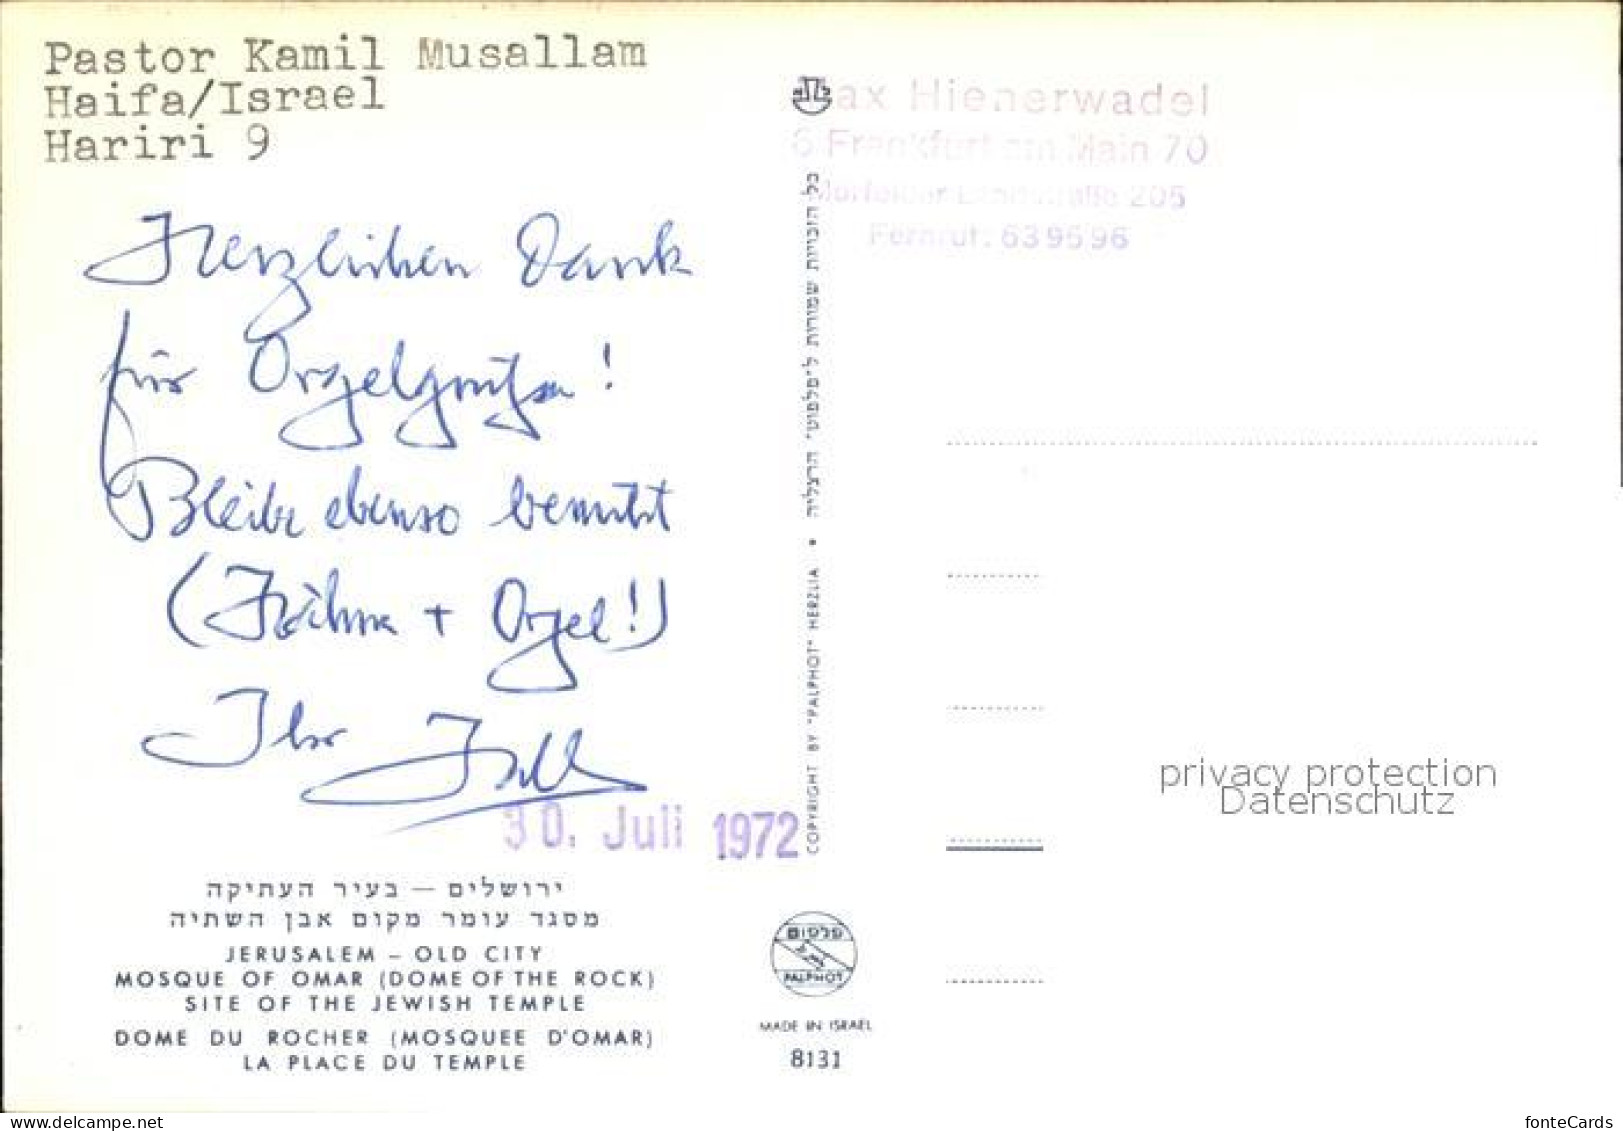 Pastor Kamil Musallam
Haifa/Israel
Hariri 9
Herzlichen Dank
für Orgelgrüße!
Bleibe ebenso bemüht
( + Orgel!)
Ihr
30. Juli 1972
ירושלים – בעיר העתיקה
מסגד עומר מקום אבן השתיה
JERUSALEM – OLD CITY
MOSQUE OF OMAR (DOME OF THE ROCK)
SITE OF THE JEWISH TEMPLE
DOME DU ROCHER (MOSQUEE D'OMAR)
LA PLACE DU TEMPLE
כל הזכויות שמורות ל״פלפוט״ הרצליה • COPYRIGHT BY "PALPHOT" HERZLIA
פלפוט
PALPHOT
MADE IN ISRAEL
8131
ax Hienerwadel
6 Frankfurt am Main 70
Mörfelder Landstraße 205
Fernruf: 639696
privacy protection
Datenschutz
www.delcampe.net
fonteCards